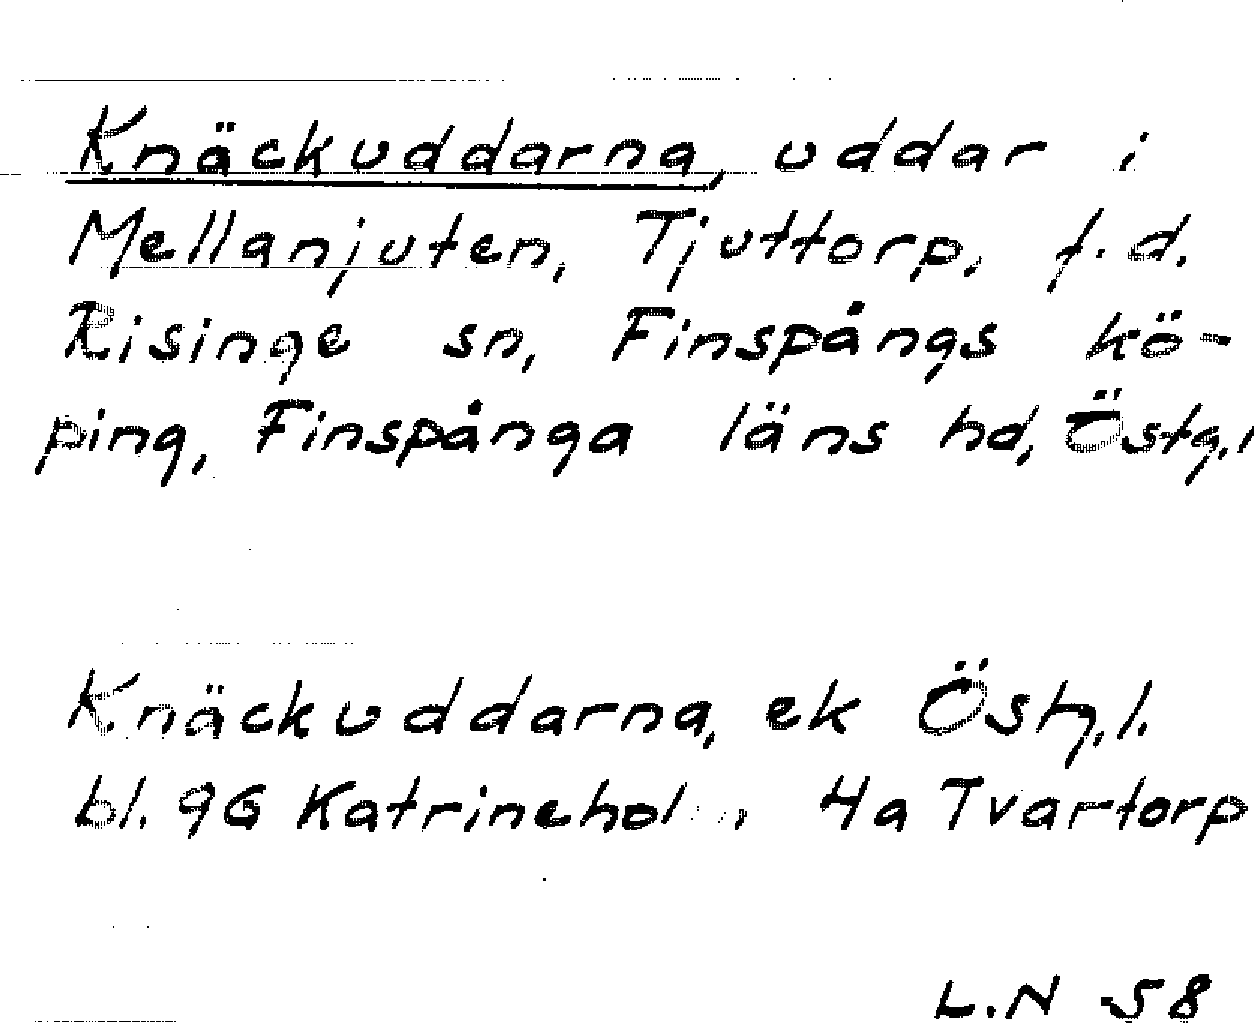 Knäckuddarna, uddar i
Mellanjuten, Tjuttorp, f.d.
Risinge sn, Finspångs kö-
ping, Finspånga läns hd, Östg.l
Knäckuddarna, ek Östg.l.
bl. 96 Katrineholm 4a Tvartorp
L.N 58